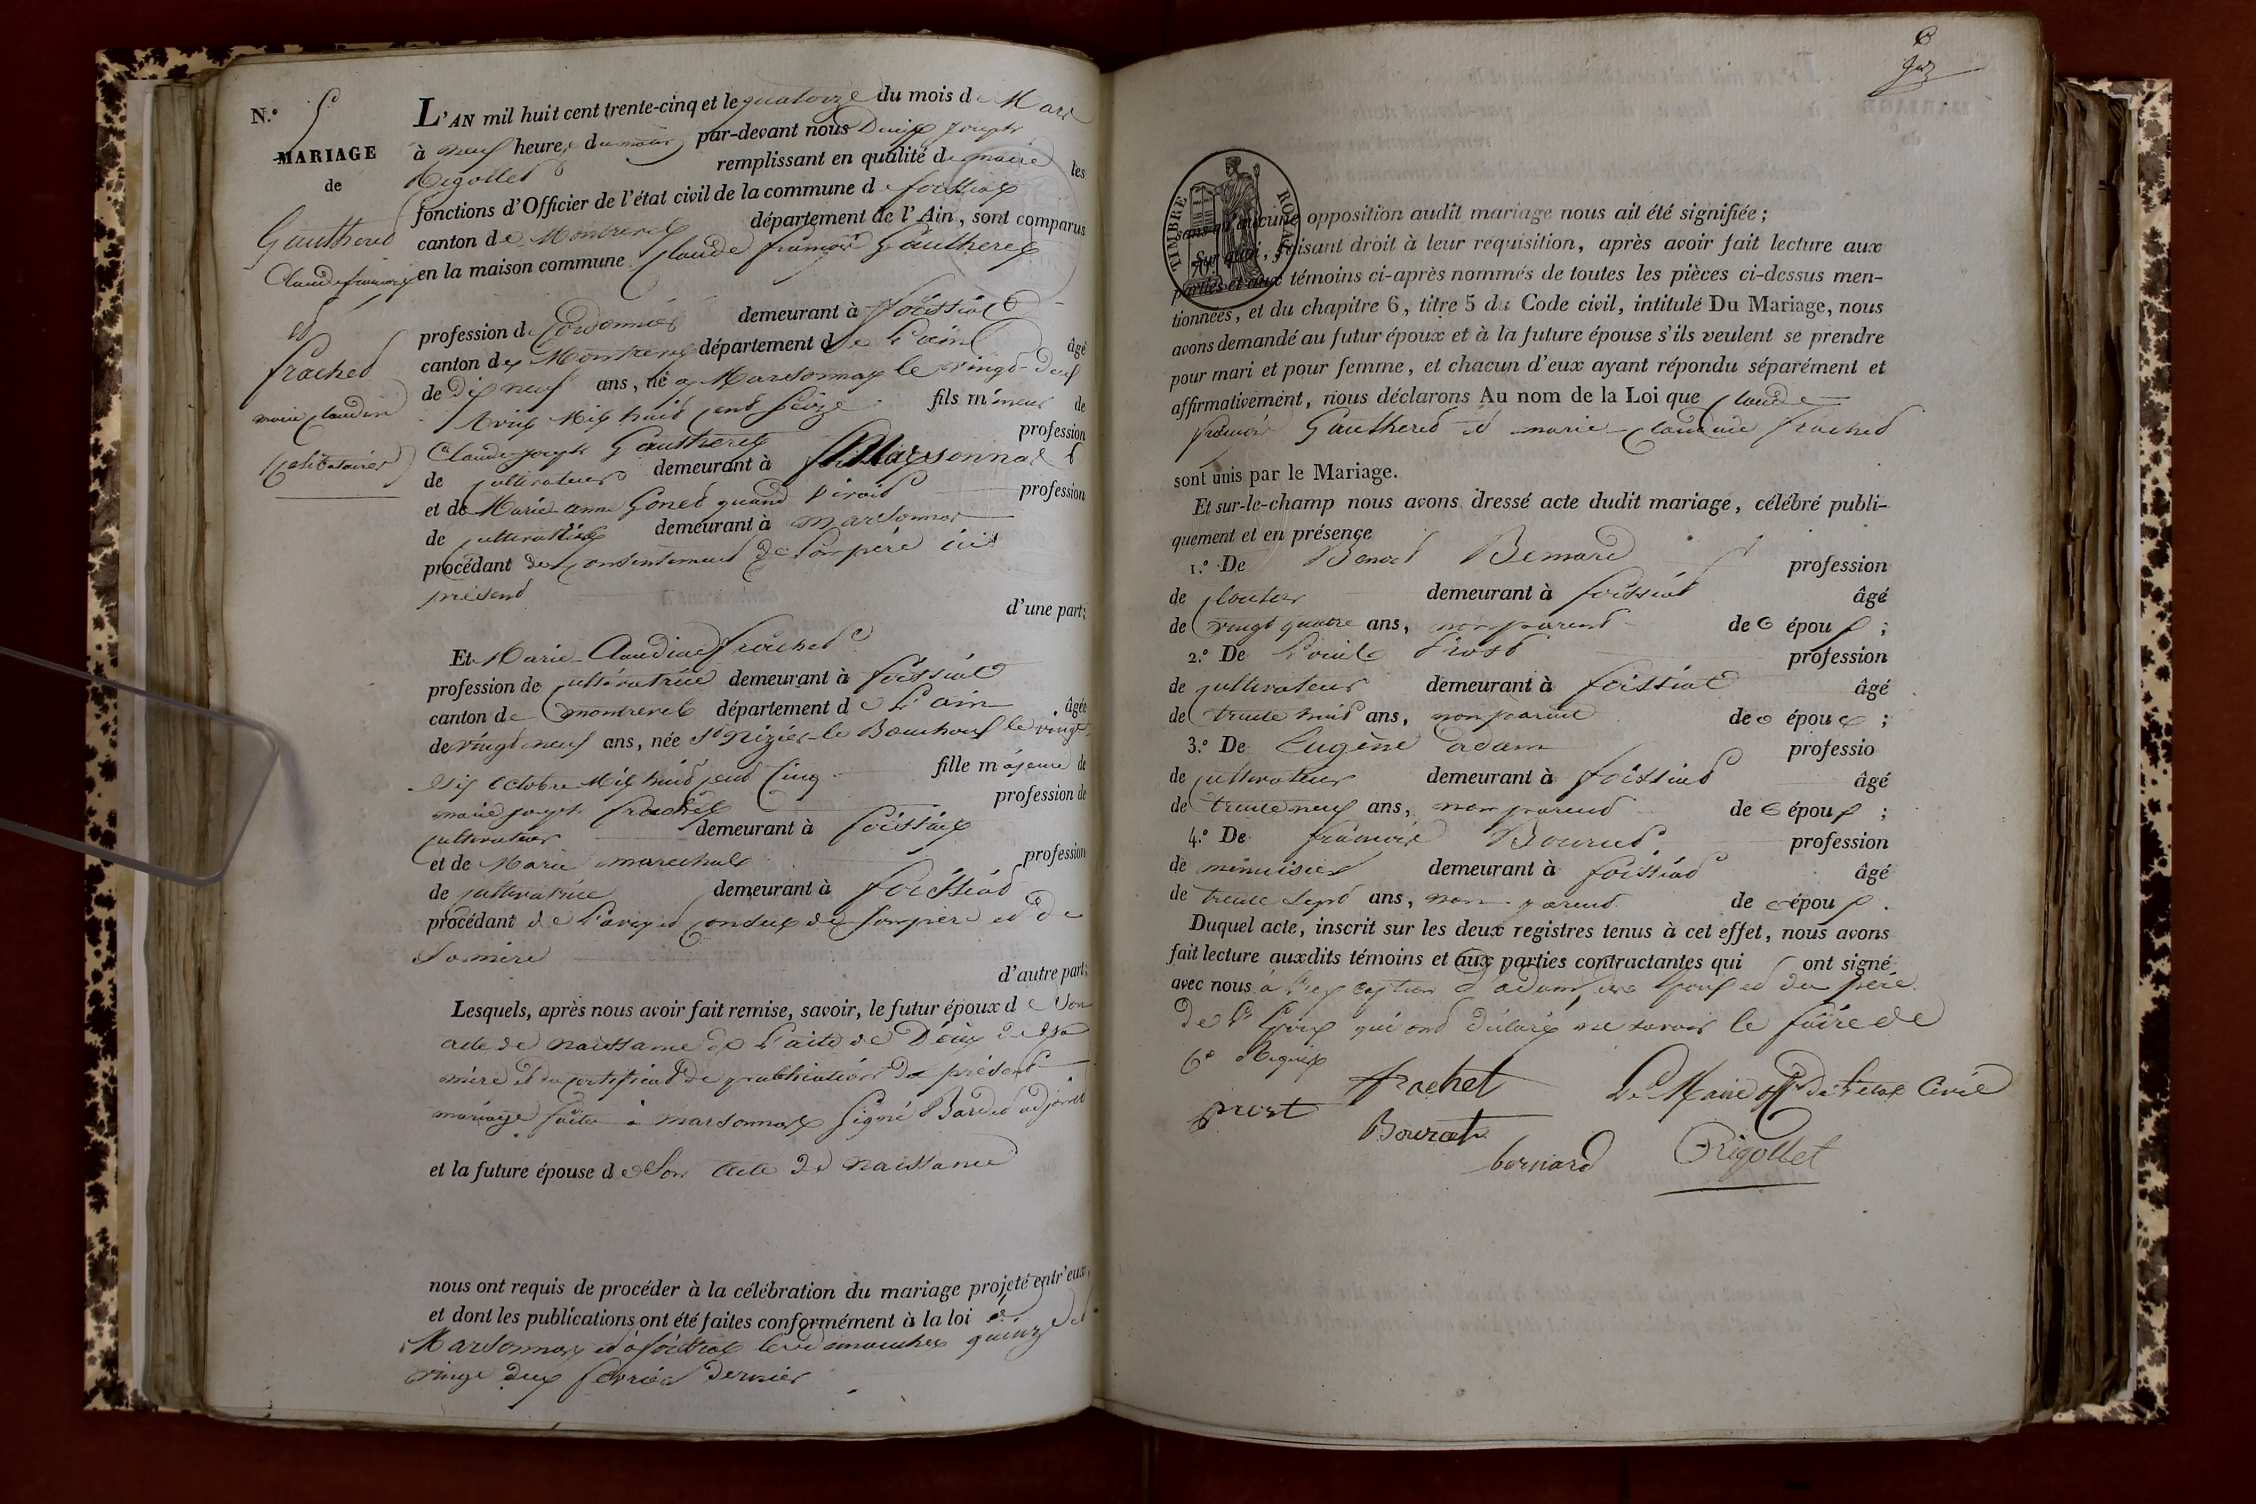 N.° 5
MARIAGE
de
Gautheret
Claude françois
et
frachet
marie claudine
Celibataires
L'AN mil huit cent trente-cinq et le quatorze du mois de Mars
à neuf heures du matin par-devant nous Denis joseph
Rigollet remplissant en qualité de maire les
fonctions d'Officier de l'état civil de la commune de foissiat
canton de Montrevel département de l'Ain, sont comparus
en la maison commune Claude françois Gautheret
profession de Cordonnier demeurant à foissiat
canton de Montrevel département de L'ain âgé
de Dix neuf ans, né a Marsonnas le vingt-deux
Avril Mil huit Cent Seize fils mineur de
Claude joseph Gautheret profession
de cultivateur demeurant à Marsonnas
et de Marie anne Gonet quand vivait profession
de cultivatrice demeurant à marsonnas
procédant du Consentement de Son père ici
présent
d'une part;
Et Marie Claudine frachet
profession de cultivatrice demeurant à foissiat
canton de montrevel département de L'ain âgée
de vingt neuf ans, née St Nizier-le Bouchoux le vingt
Six octobre Mil huit cent Cinq fille majeure de
marie joseph frachet profession de
cultivateur demeurant à foissiat
et de Marie marechal profession
de cultivatrice demeurant à foissiat
procédant de L'avis et Conseil de Son père et de
Sa mère
d'autre part;
Lesquels, après nous avoir fait remise, savoir, le futur époux de Son
acte de naissance de L'acte de Décès de Sa
mère et du certificat de publication du présent
mariage faite à marsonnas Signé Bardet adjoint
et la future épouse de Son acte de naissance
nous ont requis de procéder à la célébration du mariage projeté entr'eux,
et dont les publications ont été faites conformément à la loi à
Marsonnas et à foissiat les dimanches quinze et
vingt deux février dernier
6
TIMBRE ROYAL
sans qu'aucune opposition audit mariage nous ait été signifiée;
Sur quoi, faisant droit à leur requisition, après avoir fait lecture aux
parties et aux témoins ci-après nommés de toutes les pièces ci-dessus men-
tionnées, et du chapitre 6, titre 5 du Code civil, intitulé Du Mariage, nous
avons demandé au futur époux et à la future épouse s'ils veulent se prendre
pour mari et pour femme, et chacun d'eux ayant répondu séparément et
affirmativement, nous déclarons Au nom de la Loi que Claude
françois Gautheret et marie Claudine frachet
sont unis par le Mariage.
Et sur-le-champ nous avons dressé acte dudit mariage, célébré publi-
quement et en présence
1.° De Benoit Bernard profession
de cloutier demeurant à foissiat âgé
de vingt quatre ans, non parent de époux;
2.° De Louis Prost profession
de cultivateur demeurant à foissiat âgé
de trente huit ans, non parent de époux;
3.° De Eugène adam professio
de cultivateur demeurant à foissiat âgé
de trente neuf ans, non parent de époux;
4.° De françois Bourat profession
de menuisier demeurant à foissiat âgé
de trente Sept ans, non parent de époux.
Duquel acte, inscrit sur les deux registres tenus à cet effet, nous avons
fait lecture auxdits témoins et aux parties contractantes qui ont signé
avec nous à l'exception d'adam, des époux et du père
de L'époux qui ont déclaré ne savoir le faire de
ce Requis
frachet Le Maire off de l'etat Civil
prost
Bourat
bernard Rigollet